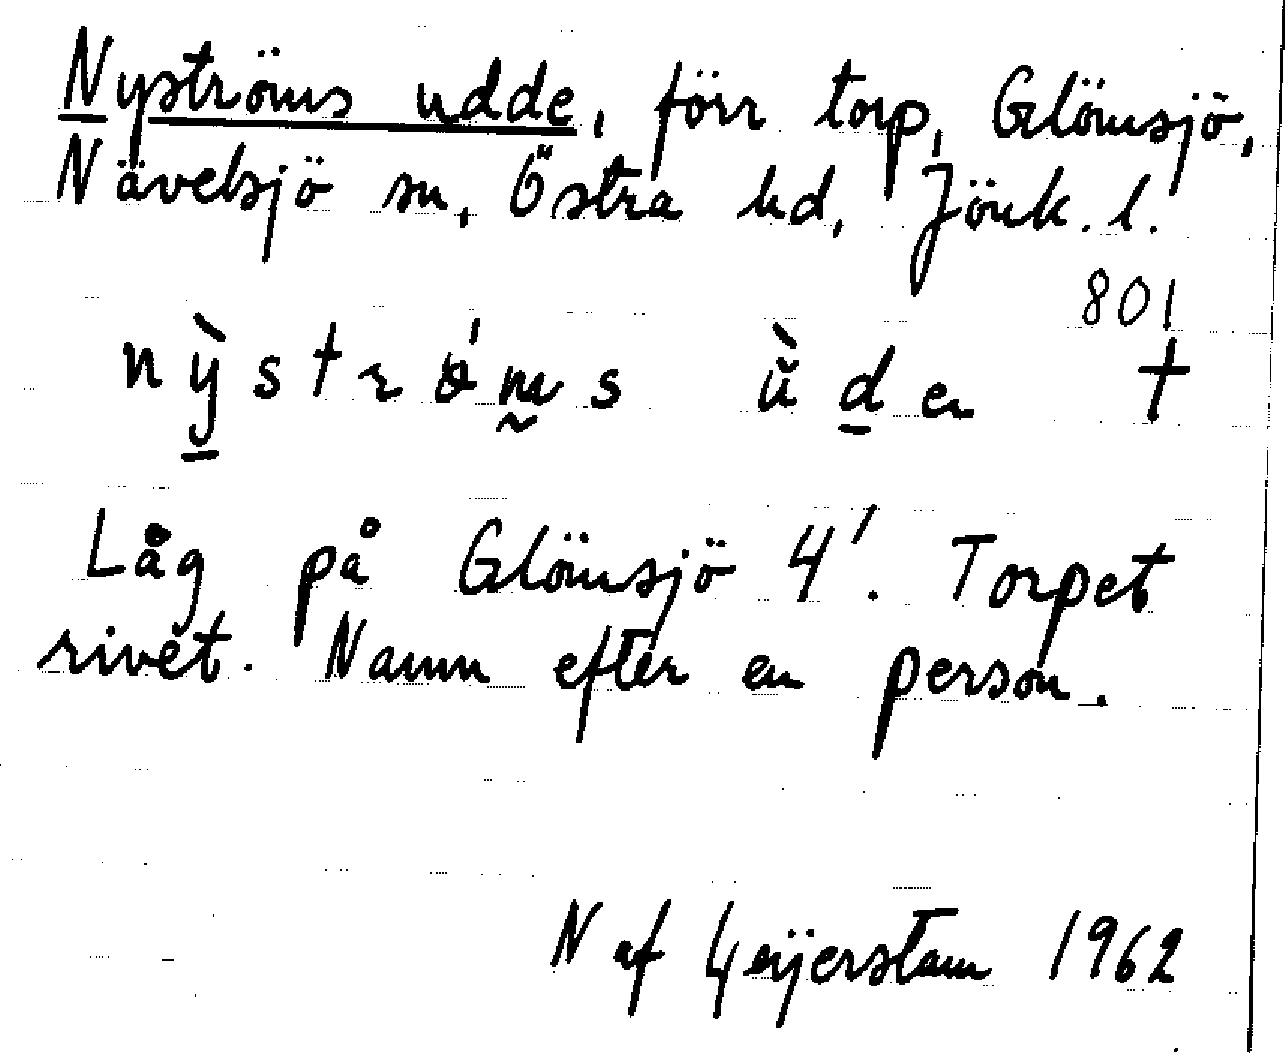 Nyströms udde, förr torp, Glömsjö,
Nävelsjö sn, Östra hd, Jönk. l.
801
nỳströ́m̰s ùde †
Låg på Glömsjö 4'. Torpet
rivet. Namn efter en person.
N af Geijerstam 1962